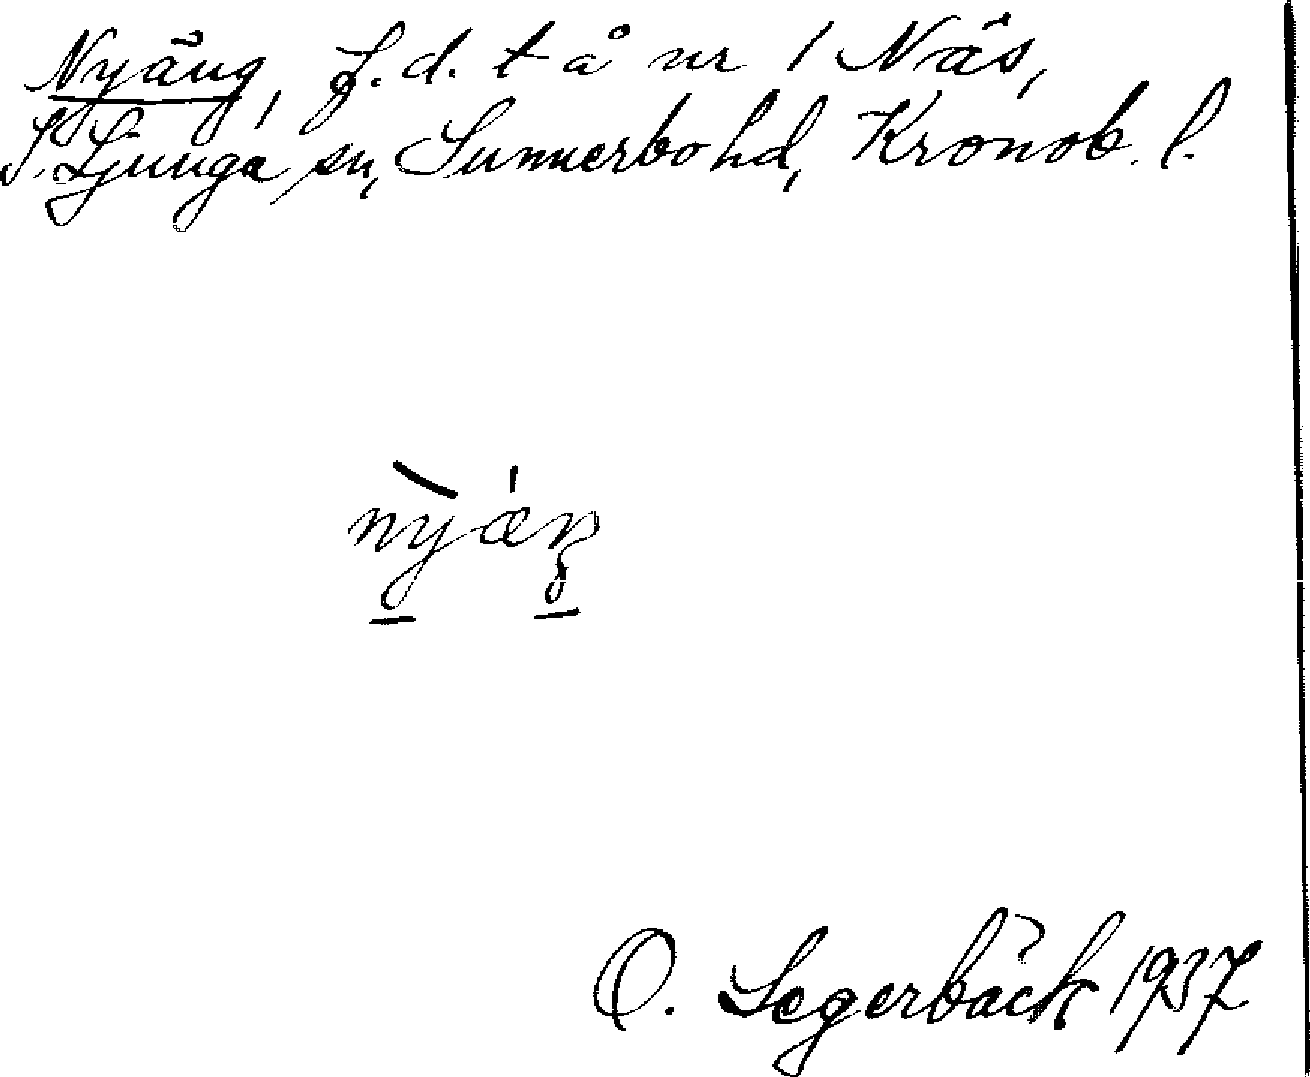 Nyäng, f.d. t å nr 1 Näs,
S. Ljunga sn, Sunnerbo hd, Kronob. l.
nỳǽŋ
O. Segerbäck 1937